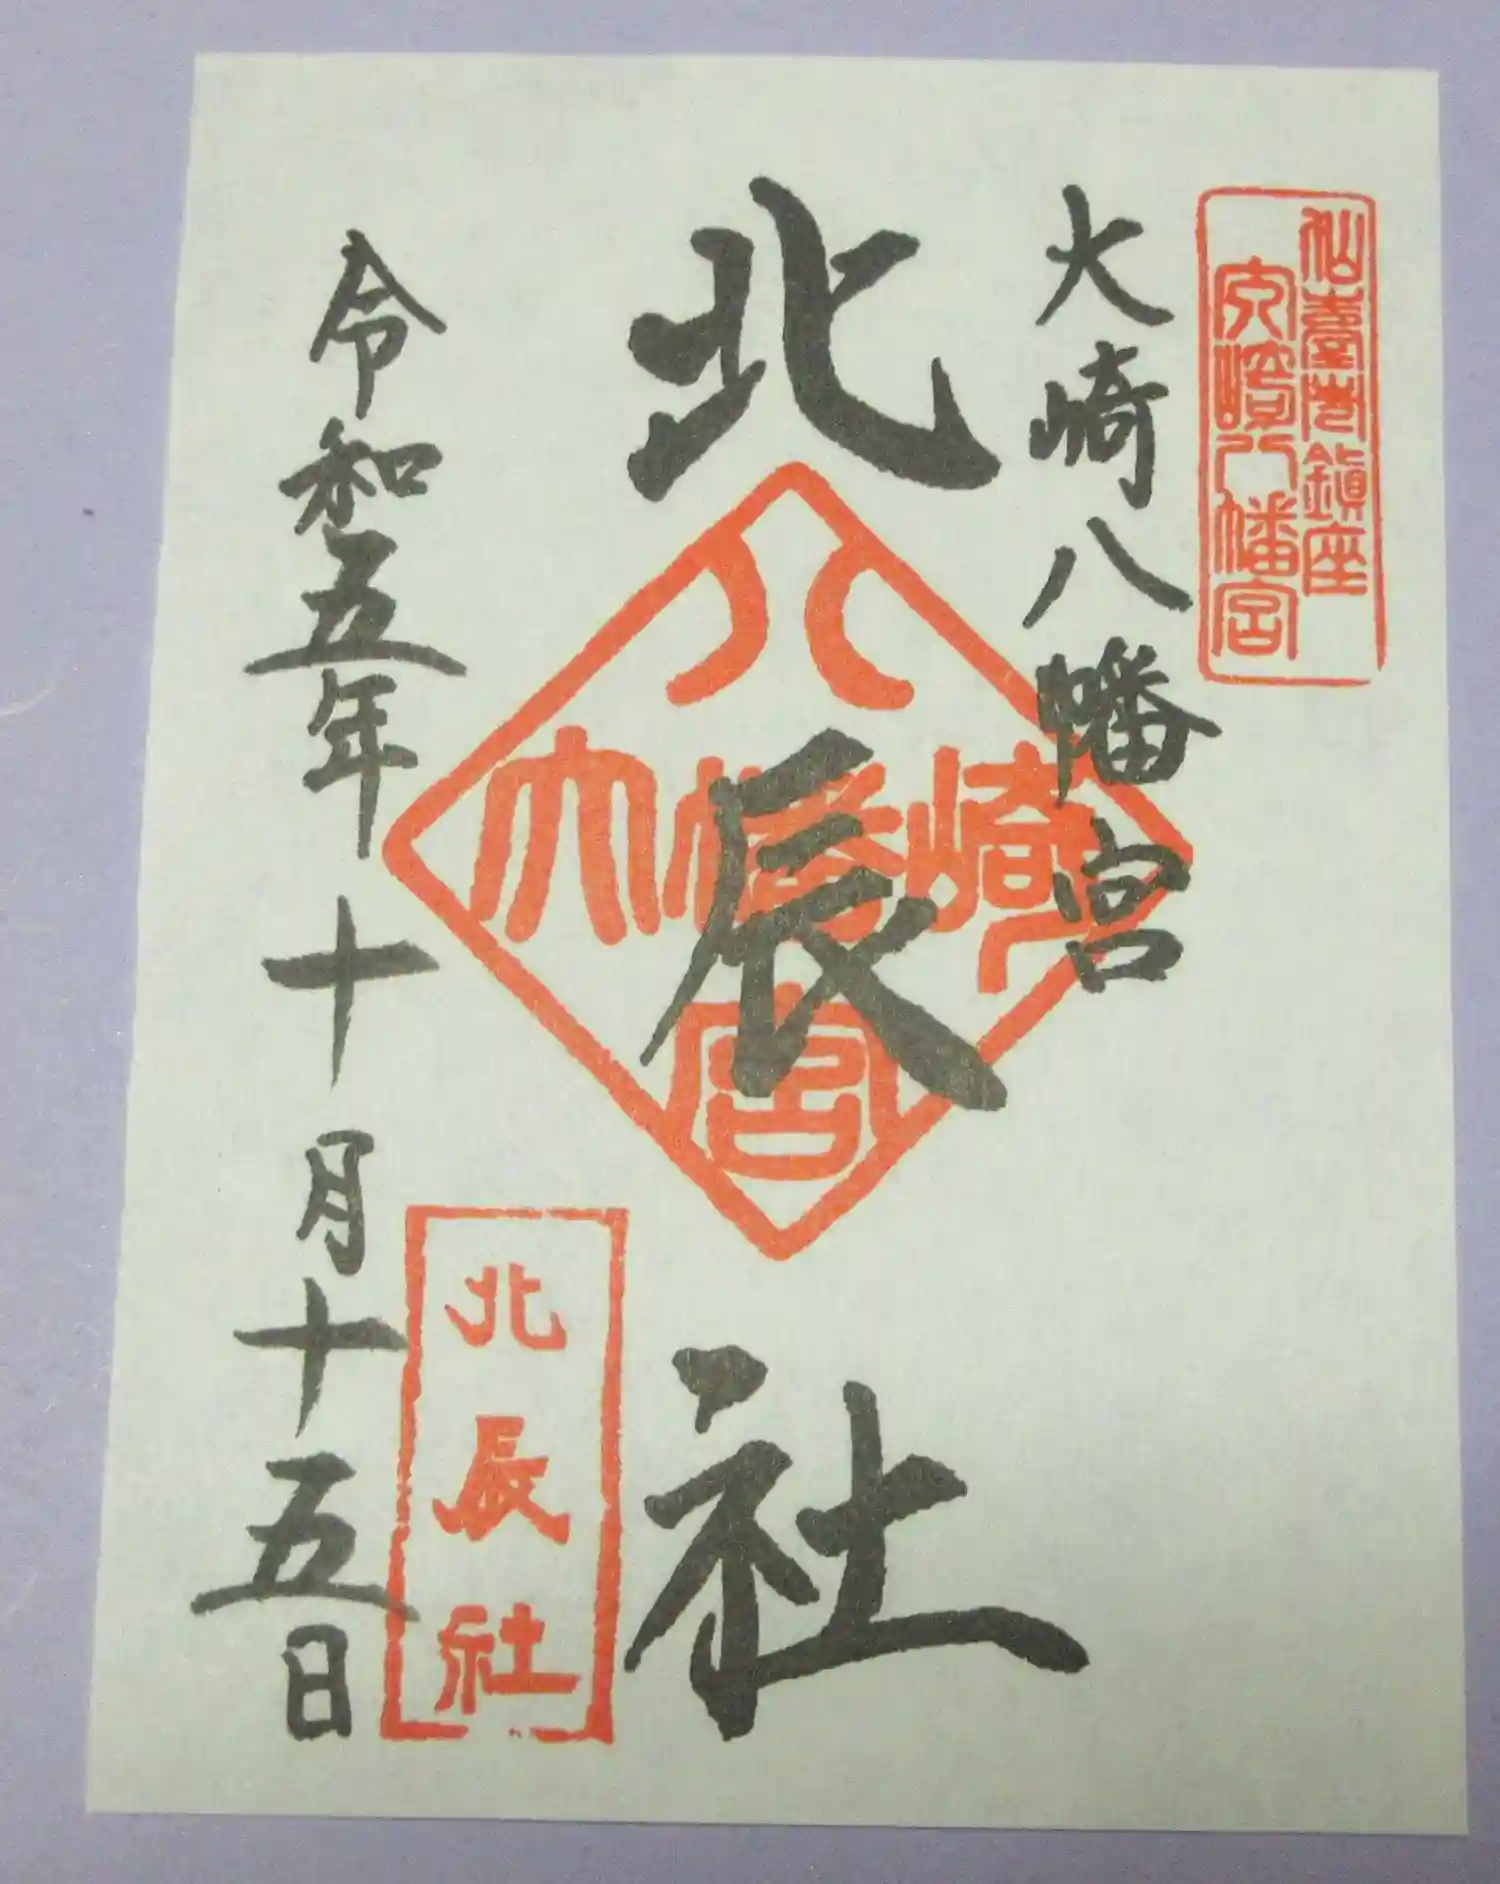 仙臺市鎮座
大崎八幡宮
大崎八幡宮
北辰社
八
大幡崎
宮
北辰社
令和五年十月十五日